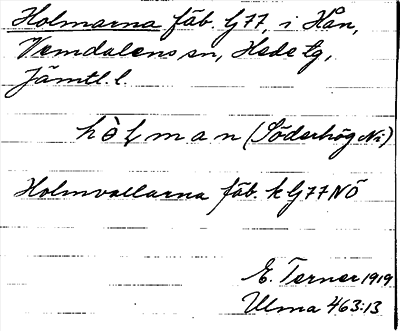 Holmarna fäb. G77, i Hån,
Vemdalens sn, Hede tg,
Jämtl. l.
hòlman (Söderhög Ni)
Holmvallarna fäb. k G77NÖ
E. Terner 1919
Ulma 463:13